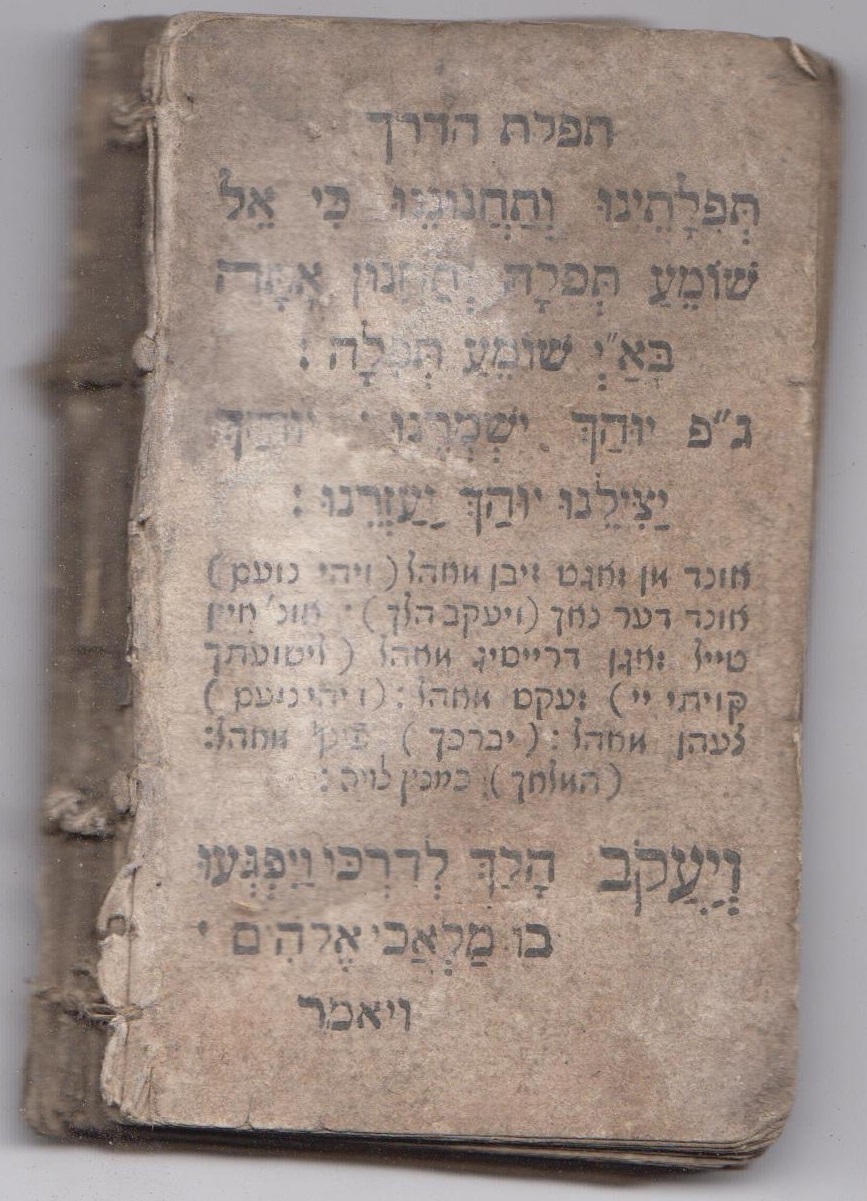 תפלת הדרך
תְּפִלָּתֵינוּ וְתַחֲנוּנֵנוּ כִּי אֵל
שׁוֹמֵעַ תְּפִלָּה וְתַחֲנוּן אַתָּה
בְּאַ"יְ שׁוֹמֵעַ תְּפִלָּה :
ג"פ יוּהַךְ יִשְׁמְרֵנוּ · יוּהַךְ
יַצִּילֵנוּ יוּהַךְ יַעַזְרֵנוּ :
אונד מן זאגט זיבן מאהל (ויהי נועם)
אונד דער נאך (ויעקב הלך) · אונ'
טייל זאגן דרייסיג מאהל (לישועתך
קויתי יי) זעקס מאהל : (ויהי נועם)
צעהן מאהל : (יברכך) מאהל:
(המלאך)
וְיַעֲקֹב הָלַךְ לְדַרְכּוֹ וַיִּפְגְּעוּ
בו מַלְאֲכֵי אֱלֹהִים ·
ויאמר